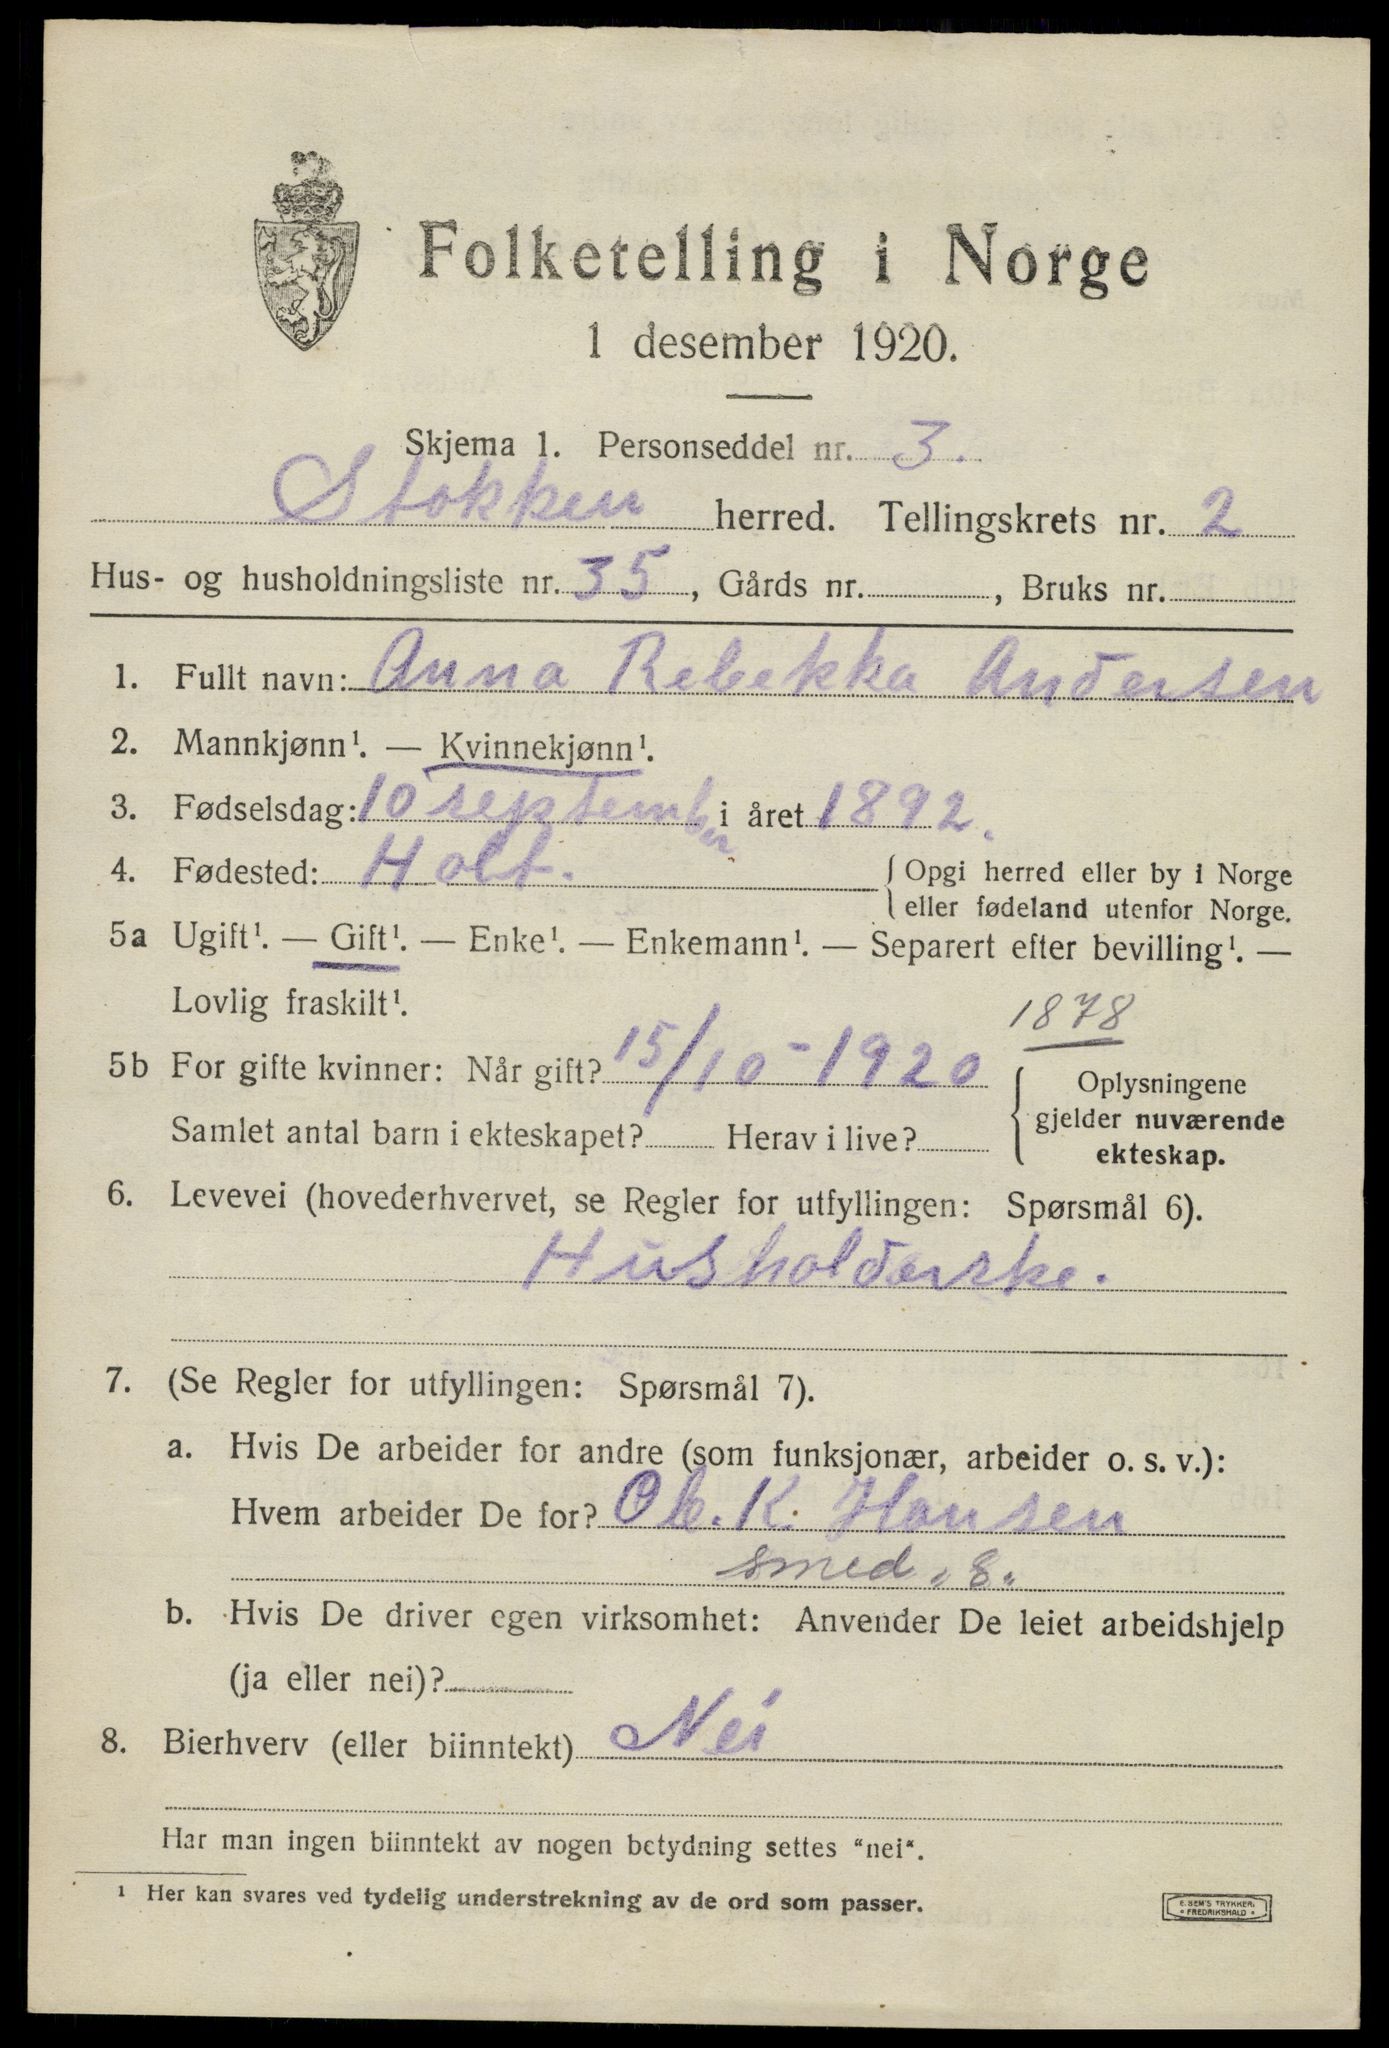 Folketelling i Norge
1 desember 1920.
Skjema 1. Personseddel nr. 3.
Stokken herred. Tellingskrets nr. 2
Hus- og husholdningsliste nr. 35, Gårds nr. , Bruks nr.
1. Fullt navn: Anna Rebekka Andersen
2. Mannkjønn¹. — Kvinnekjønn¹.
3. Fødselsdag: 10 september i året 1892.
4. Fødested: Holt. { Opgi herred eller by i Norge
eller fødeland utenfor Norge.
5a Ugift¹. — Gift¹. — Enke¹. — Enkemann¹. — Separert efter bevilling¹. —
Lovlig fraskilt¹.
1878
5b For gifte kvinner: Når gift? 15/10-1920
Samlet antal barn i ekteskapet? Herav i live?
{ Oplysningene
gjelder nuværende
ekteskap.
6. Levevei (hovederhvervet, se Regler for utfyllingen: Spørsmål 6).
Husholderske.
7. (Se Regler for utfyllingen: Spørsmål 7).
a. Hvis De arbeider for andre (som funksjonær, arbeider o. s. v.):
Hvem arbeider De for? Ole. K. Hansen
smed „ S „
b. Hvis De driver egen virksomhet: Anvender De leiet arbeidshjelp
(ja eller nei)?
8. Bierhverv (eller biinntekt) Nei
Har man ingen biinntekt av nogen betydning settes "nei".
¹ Her kan svares ved tydelig understrekning av de ord som passer.
E. SEM'S TRYKKERI
• FREDRIKSHALD •